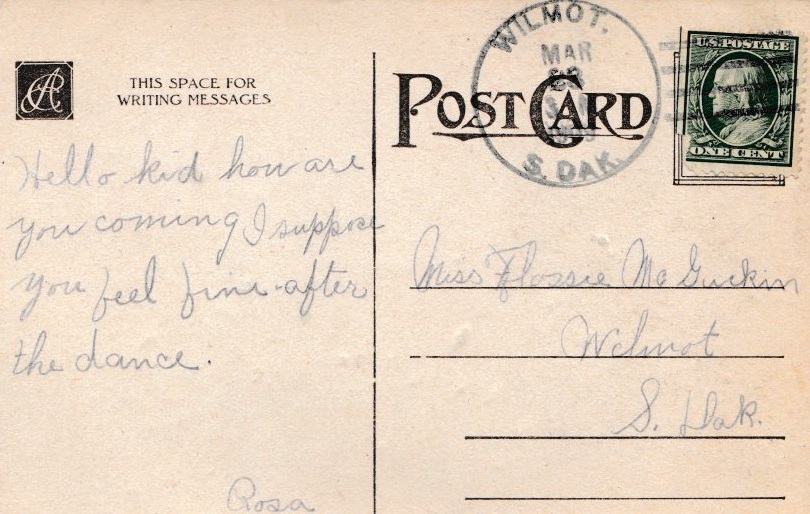 THIS SPACE FOR
WRITING MESSAGES
POST CARD
WILMOT.
MAR
S. DAK.
U.S. POSTAGE
ONE CENT
Hello kid how are
you coming I suppose
you feel fine after
the dance.
Rosa
Miss Flossie McGuckin
Wilmot
S. Dak.